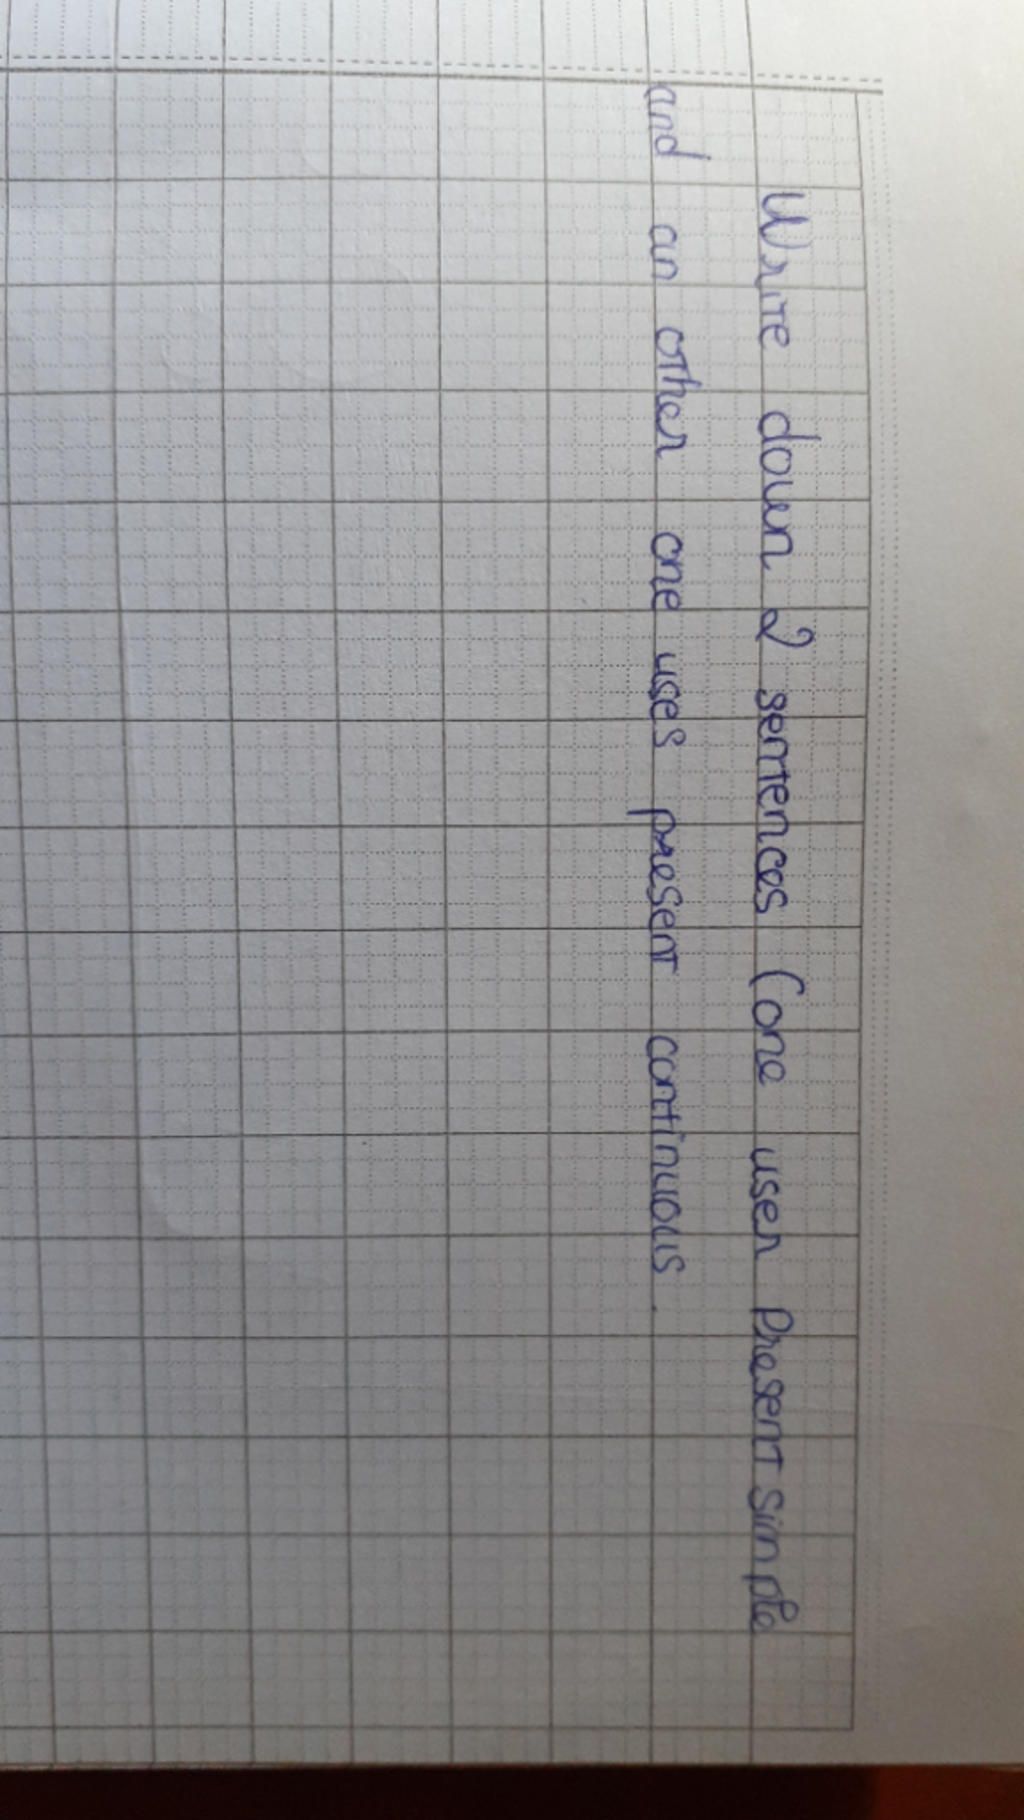 Write down 2 sentences (one user present simple
and an other one uses present continuous.